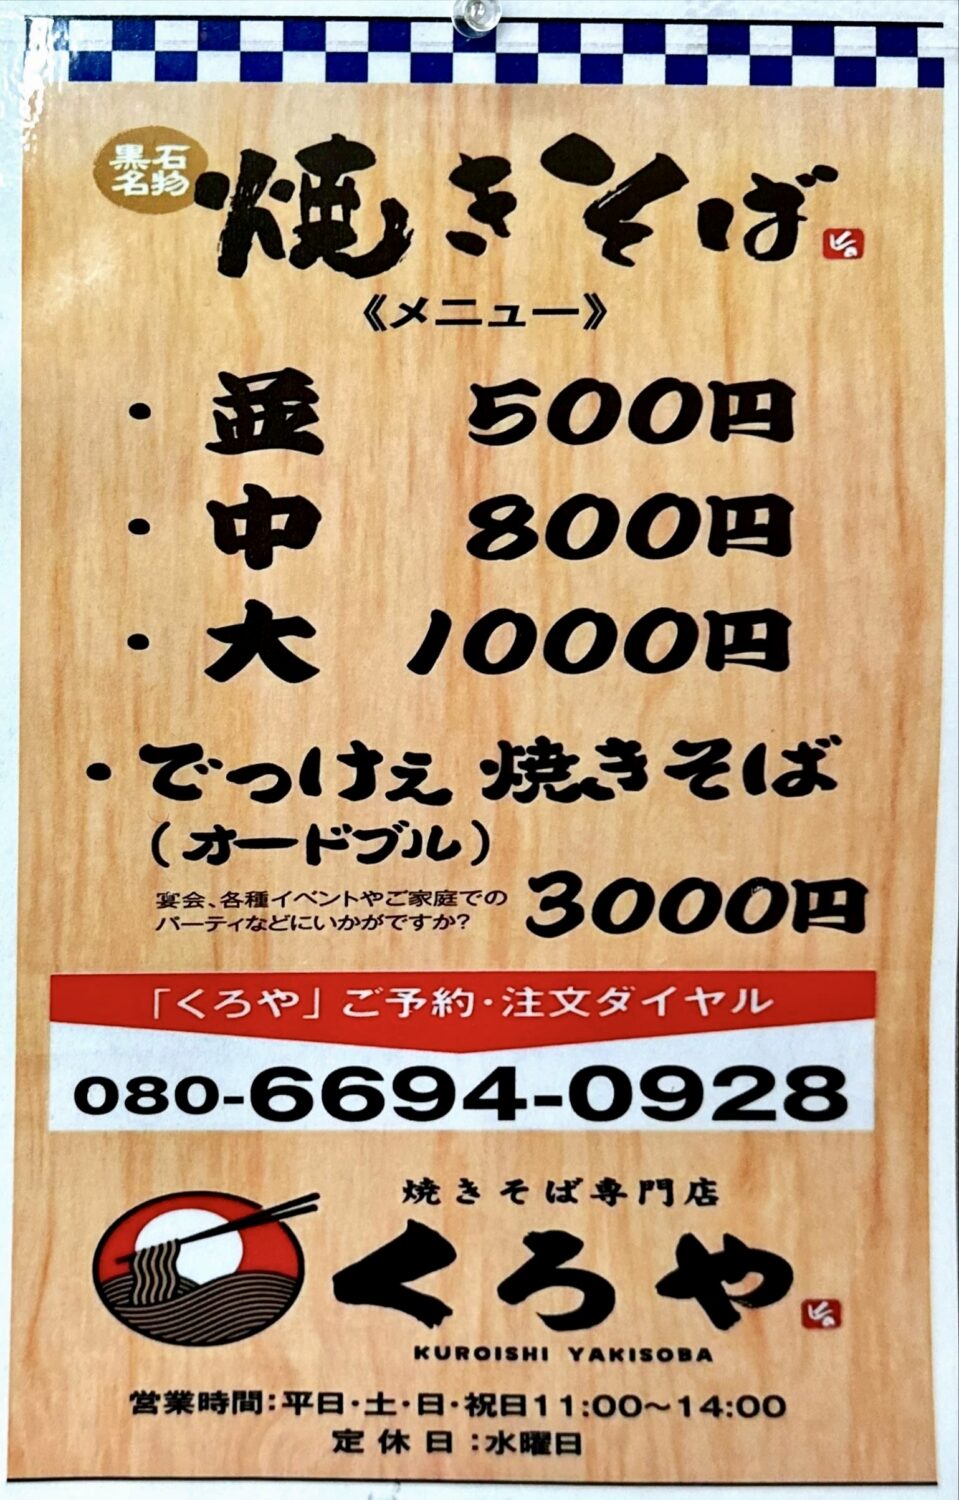 黒石
名物
焼きそば
《メニュー》
・並 500円
・中 800円
・大 1000円
・でっけぇ 焼きそば
(オードブル)
宴会、各種イベントやご家庭での
パーティなどにいかがですか?
3000円
「くろや」ご予約・注文ダイヤル
080-6694-0928
焼きそば専門店
くろや
KUROISHI YAKISOBA
営業時間:平日・土・日・祝日11:00〜14:00
定休日:水曜日